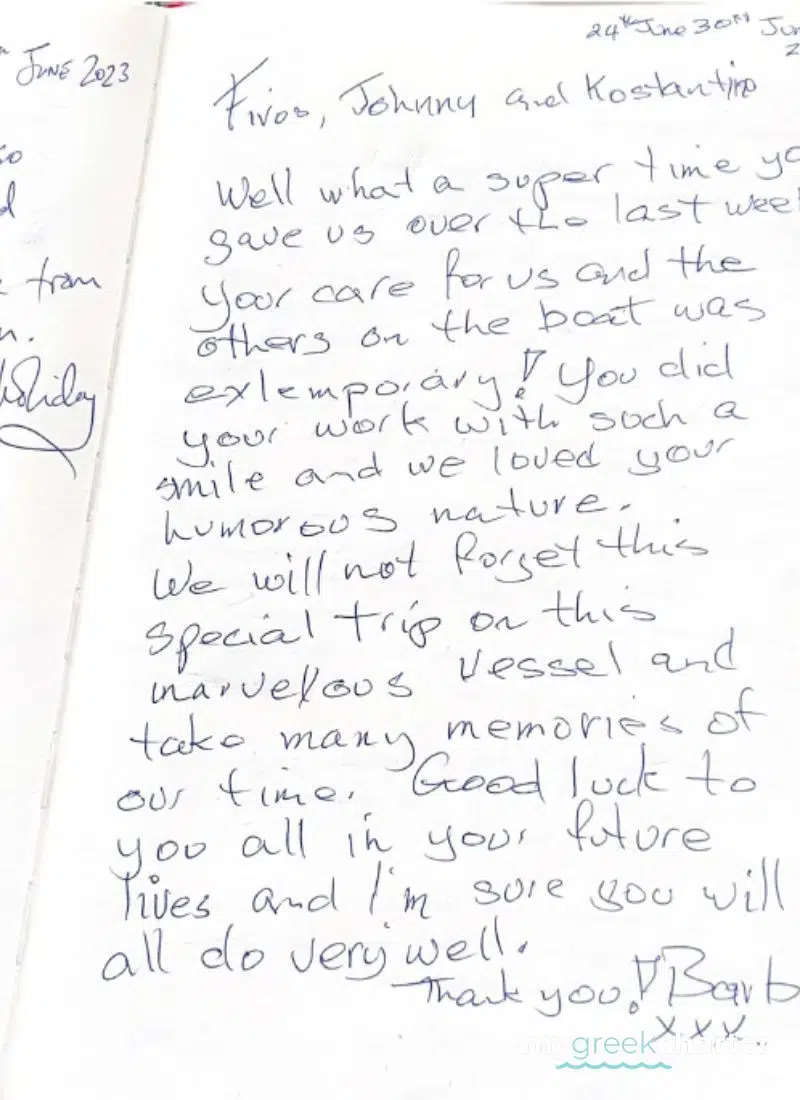 JUNE 2023
so
d
from
n.
Holiday
24th June 30th Jun
2
Fivos, Johnny and Kostantino
Well what a super time yo
gave us over the last week
Your care for us and the
others on the boat was
exlemporary! You did
your work with such a
smile and we loved your
humorous nature.
We will not forget this
special trip on this
marvelous vessel and
take many memories of
our time. Good luck to
you all in your future
lives and I'm sure you will
all do very well.
Thank you! Barb
xxx.
my greek charter